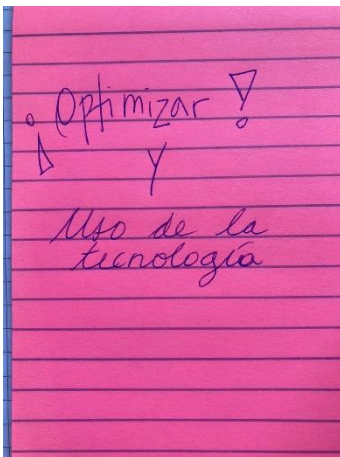 ¡Optimizar!
Y
Uso de la
tecnología